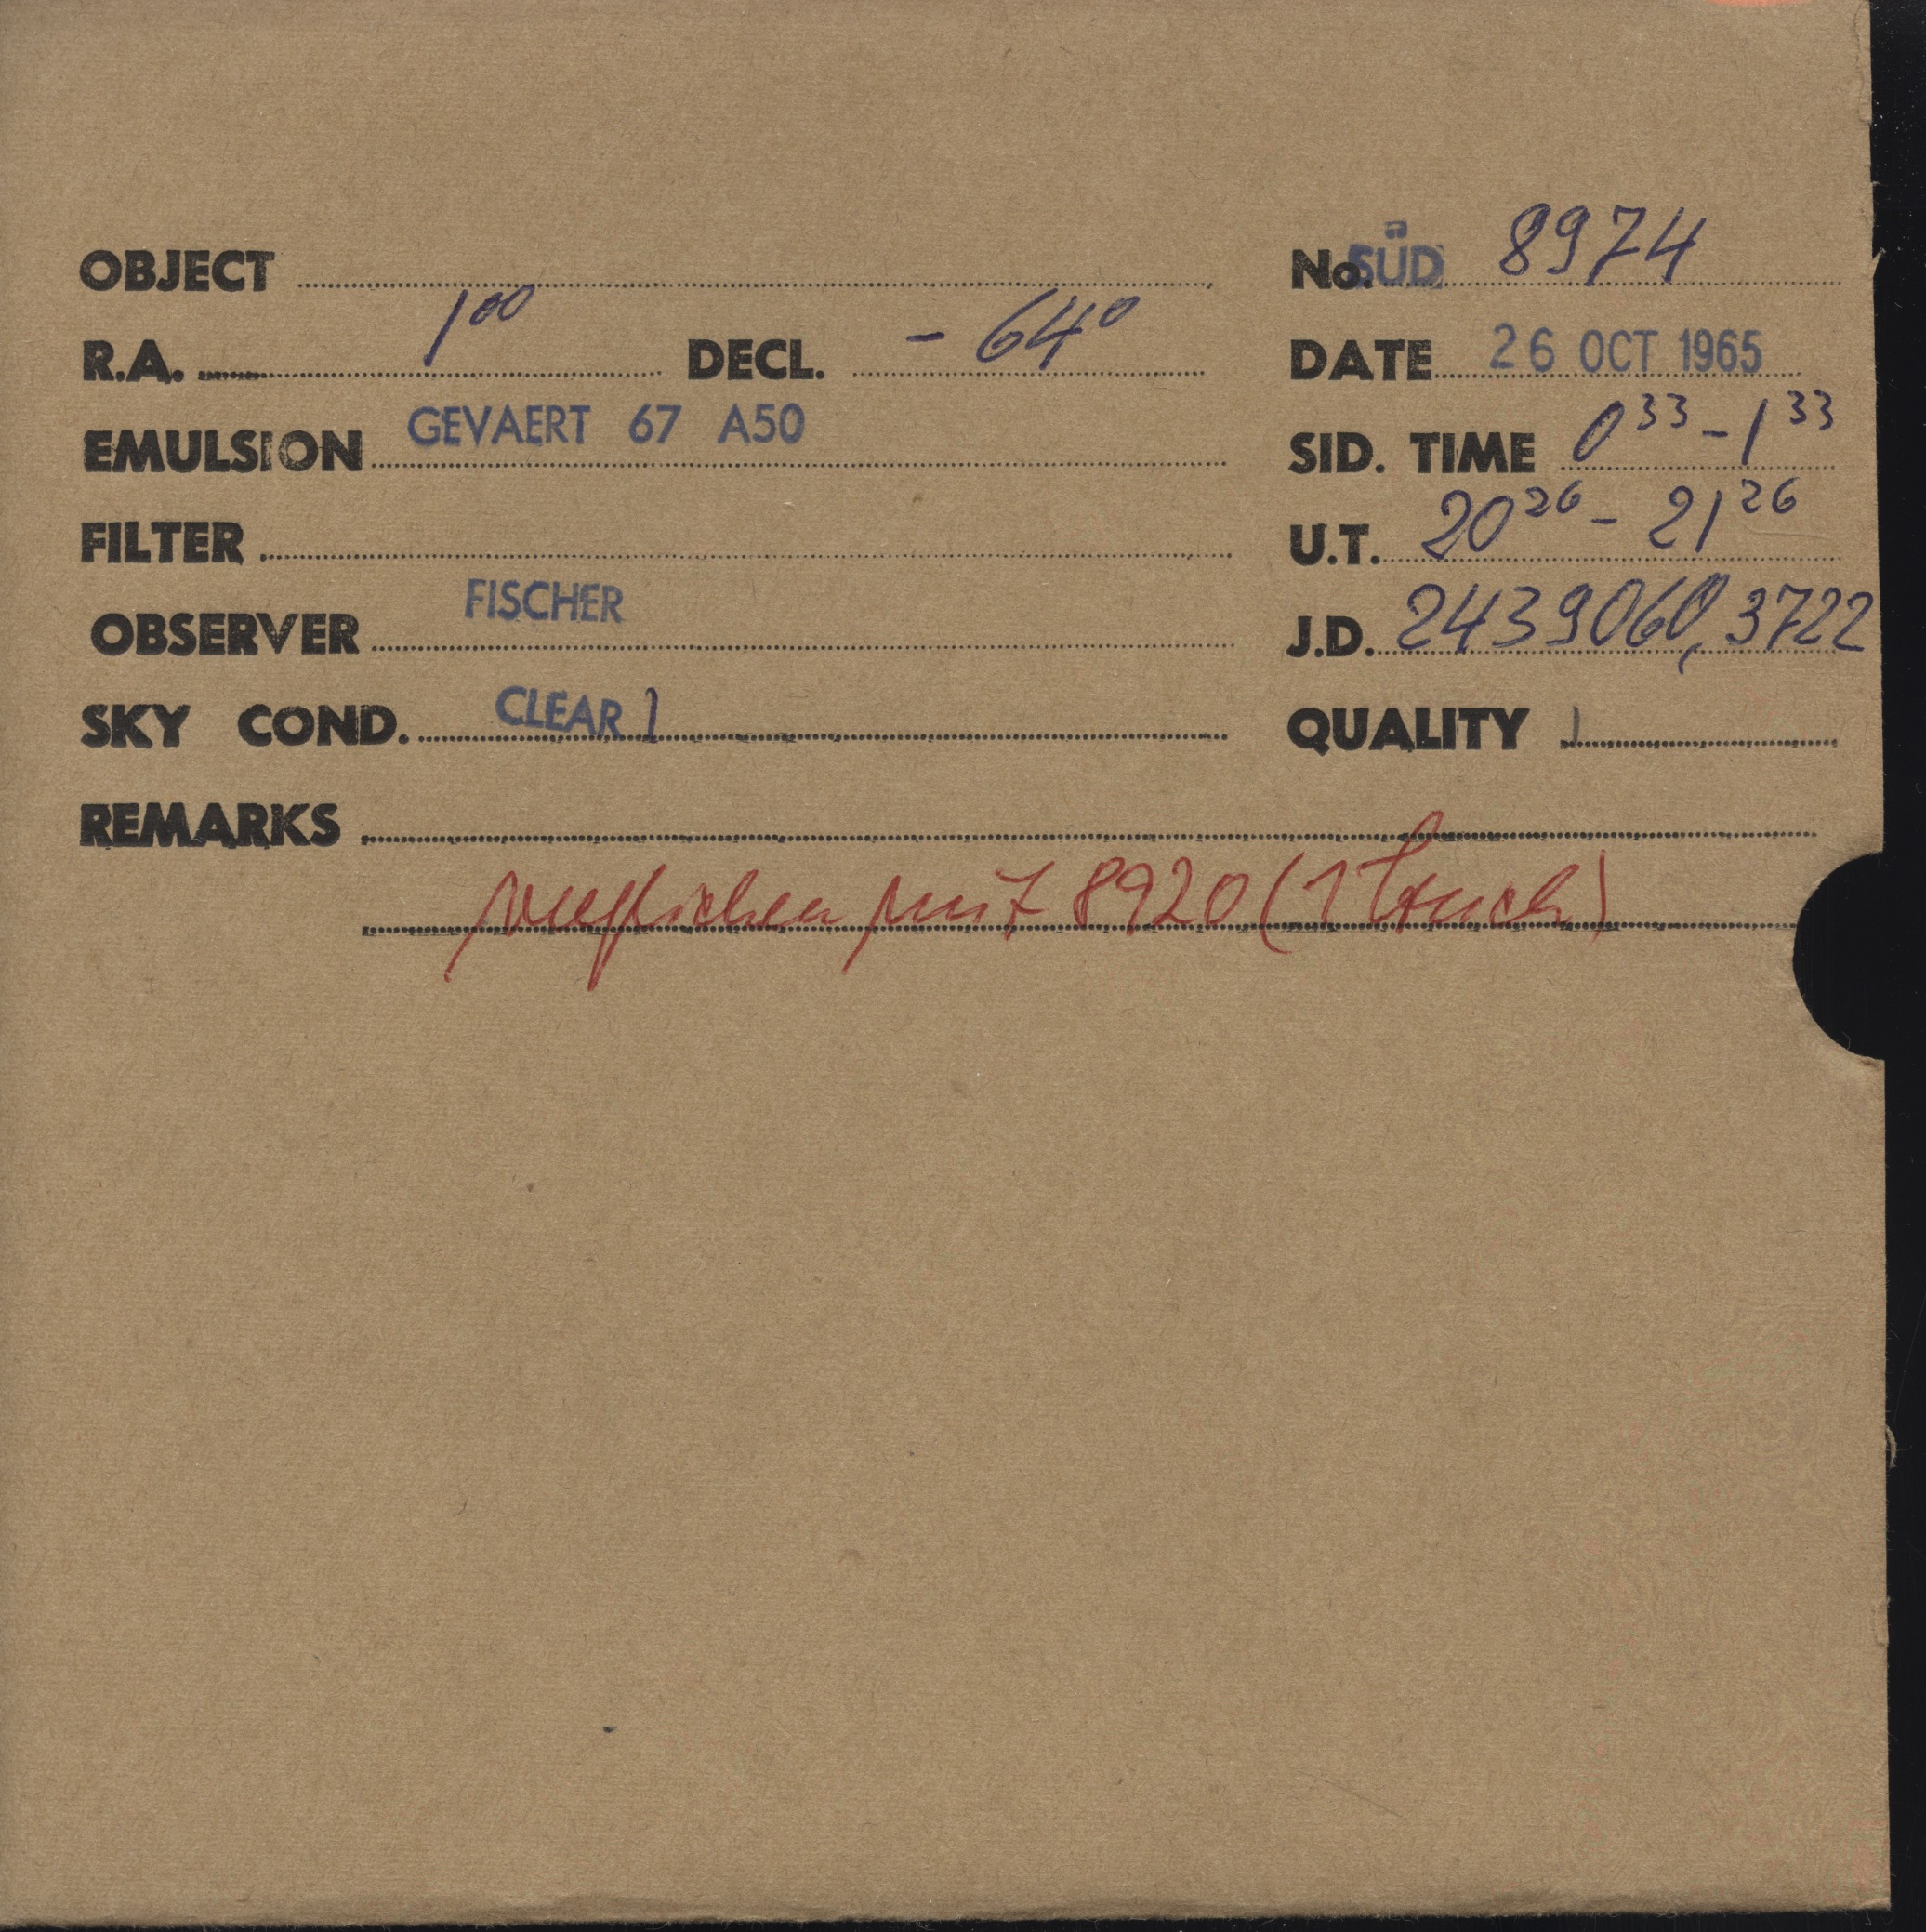 OBJECT
No. SÜD 8974
R.A. 1⁰⁰ DECL. - 64°
DATE 26 OCT 1965
EMULSION GEVAERT 67 A50
SID. TIME 0³³ - 1³³
FILTER
U.T. 20²⁶ - 21²⁶
OBSERVER FISCHER
J.D. 2439060,3722
SKY COND. CLEAR 1
QUALITY 1
REMARKS
verglichen mit 8920 (1